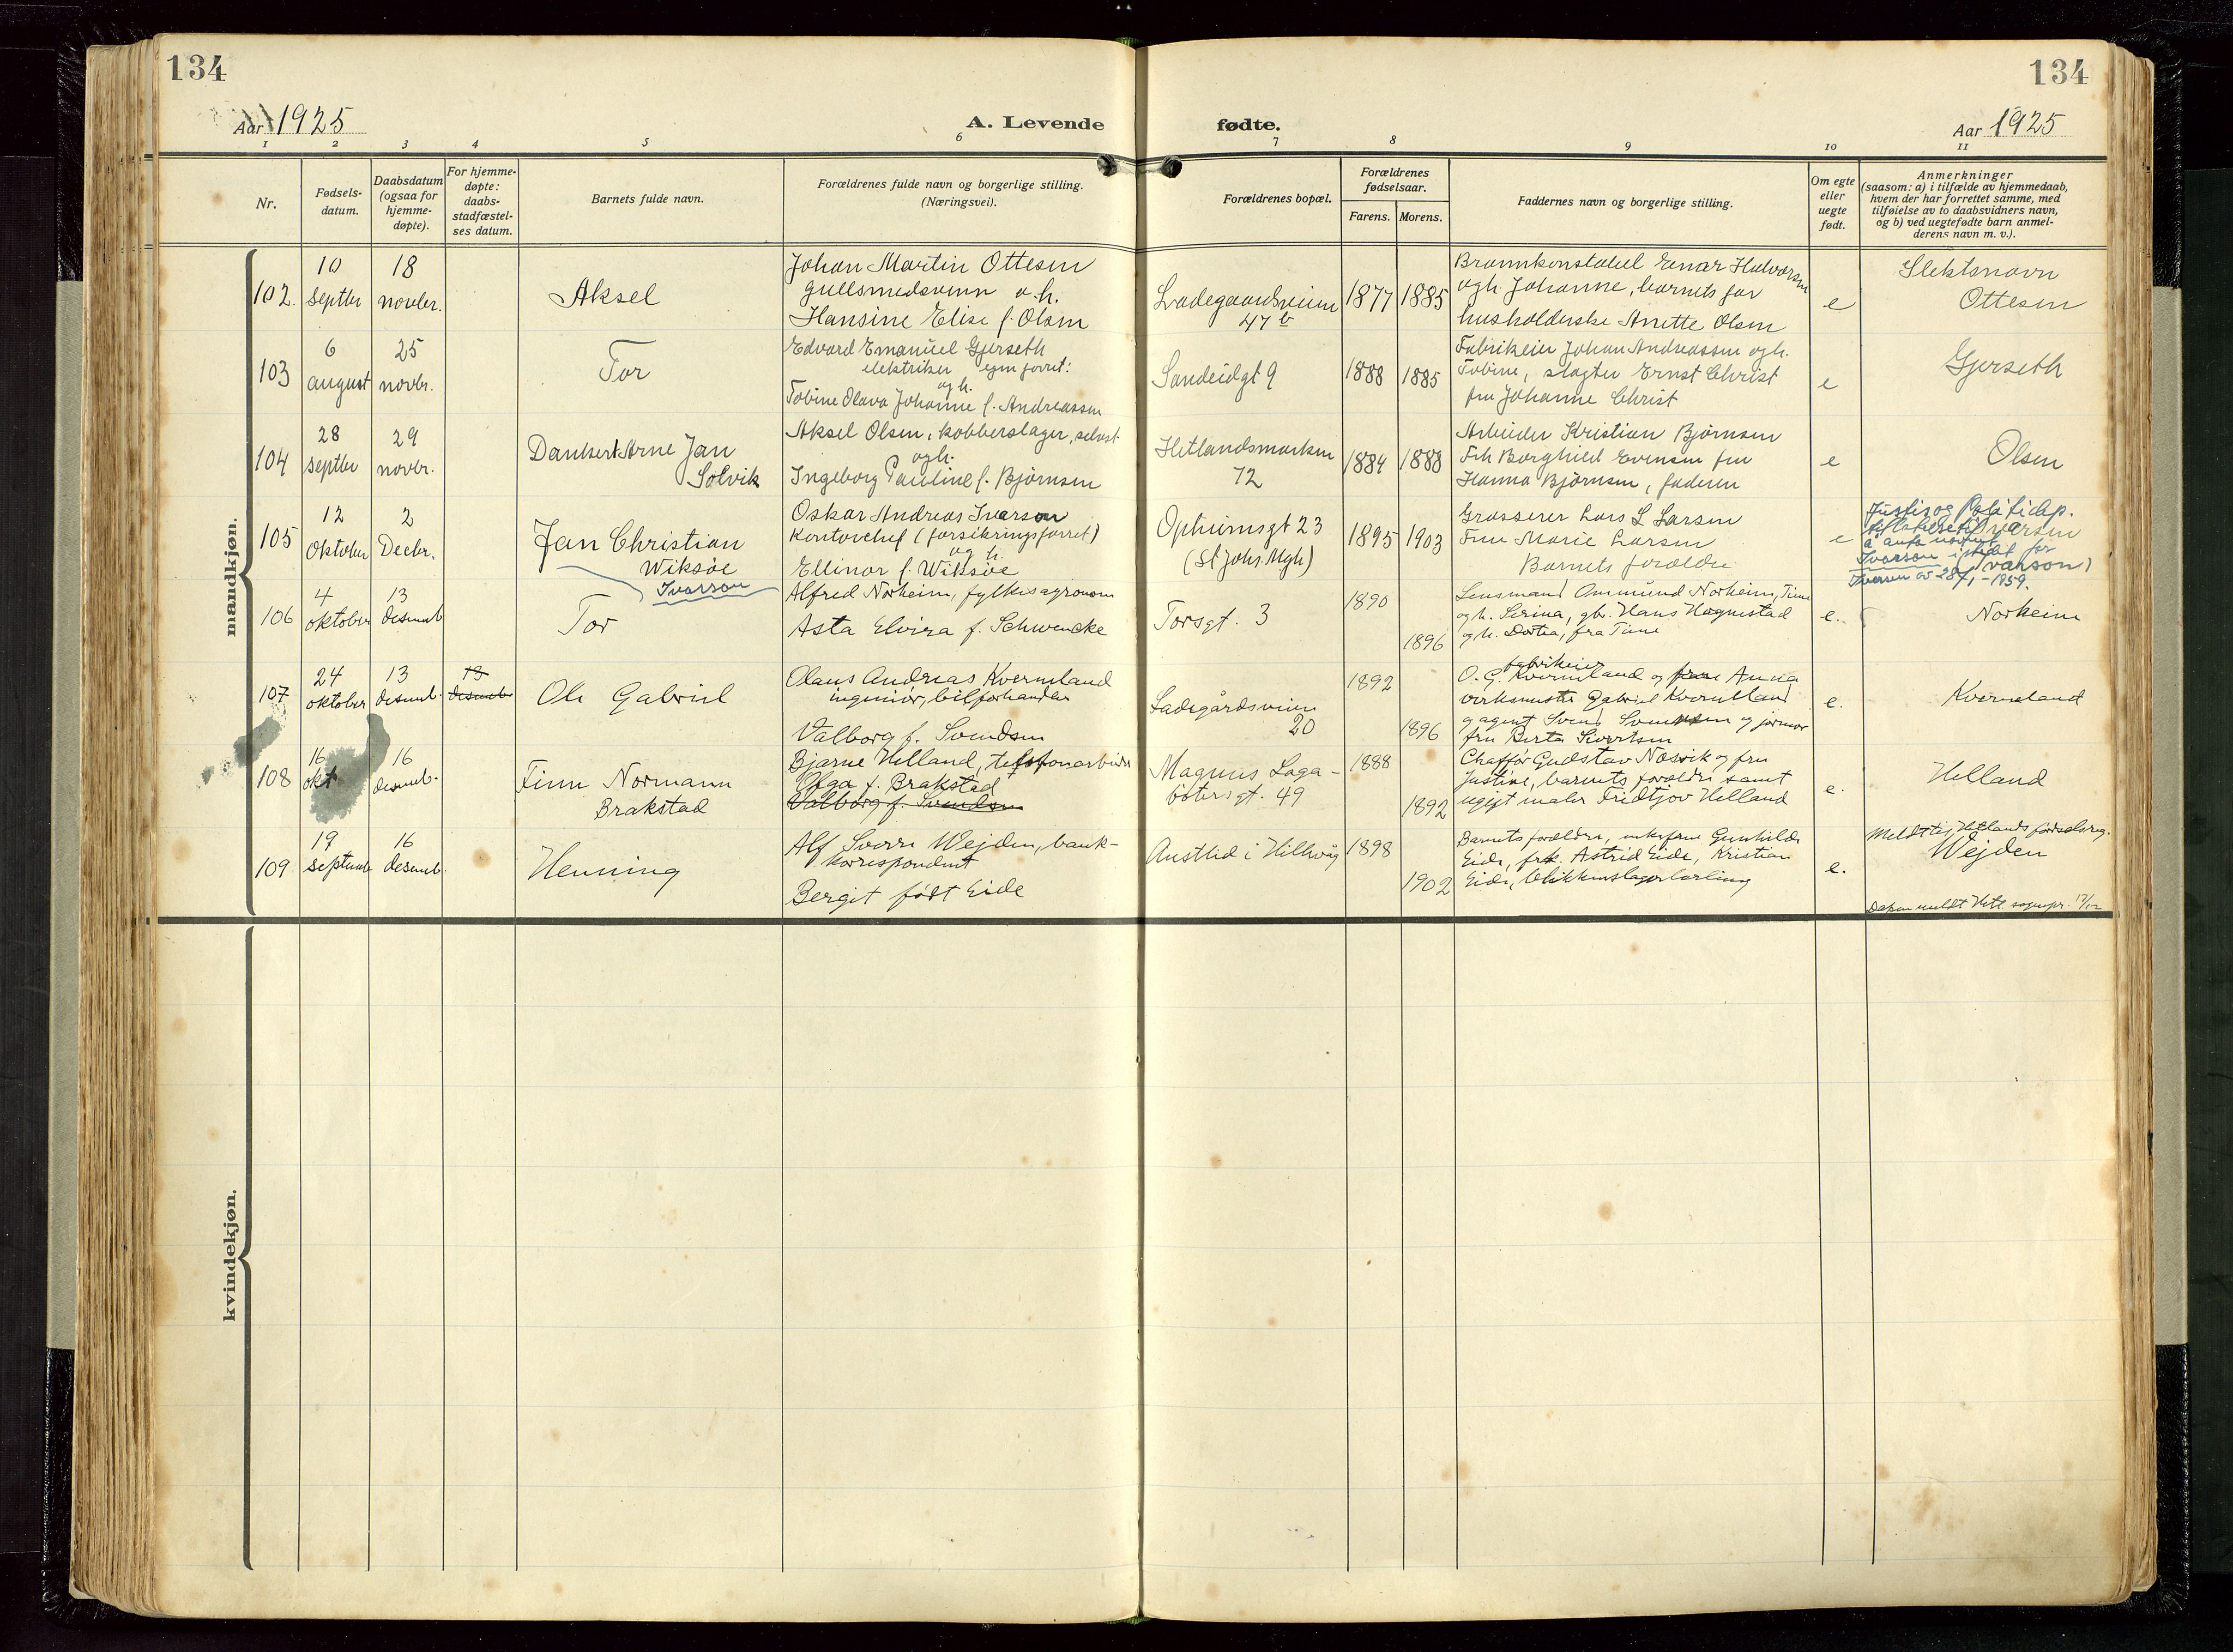 134
134
Aar 1925
A. Levende
fødte.
Aar 1925
1 2 3 4 5 6 7 8 9 10 11
Nr.
Fødsels-
datum.
Daabsdatum
(ogsaa for
hjemme-
døpte).
For hjemme-
døpte:
daabs-
stadfæstel-
ses datum.
Barnets fulde navn.
Forældrenes fulde navn og borgerlige stilling.
(Næringsvei).
Forældrenes bopæl.
Forældrenes
fødselsaar.
Farens. Morens.
Faddernes navn og borgerlige stilling.
Om egte
eller
uegte
født.
Anmerkninger
(saasom: a) i tilfælde av hjemmedaab,
hvem der har forrettet samme, med
tilføielse av to daabsvidners navn,
og b) ved uegtefødte barn anmel-
derens navn m. v.).
mandkjøn.
102
10
septbr
18
novbr.
Aksel
Johan Martin Ottesen
gullsmedsvenn o. h.
Hansine Elise f. Olsen
Ladegaardsveien
47 b
1877
1885
Brannkonstabel Einar Halvorsen
ogh. Johanne, barnets far
husholderske Anette Olsen
e
Slektsnavn
Ottesen
103
6
august
25
novbr.
Tor
Edvard Emanuel Gjerseth
elektriker egen forret:
ogh.
Tobine Olava Johanne f. Andreassen
Sandeidgt 9
1888
1885
Fabrikeier Johan Andreassen ogh.
Tobine, slagter Ernst Christ
fru Johanne Christ
e
Gjerseth
104
28
septbr
29
novbr.
Dankert Arne Jan
Solvik
Aksel Olsen, kobberslager, selvst
ogh.
Ingeborg Pauline f. Bjørnsen
Hetlandsmarken
72
1884
1888
Arbeider Kristian Bjørnsen
Frk Borghild Evensen fru
Hanna Bjørnsen, faderen
e
Olsen
105
12
Oktober
2
Decbr.
Jan Christian
Wiksøe
Ivarson
Oskar Andreas Ivarson
Kontorchef (forsikringsforret)
og h.
Ellinor f. Wiksøe
Opheimsgt 23
(St Johs. Mgh)
1895
1903
Grosserer Lars L Larsen
Frue Marie Larsen
Barnets forældre
e
Justis og Politidep.
Ivarson istedet for
Iversen av 28/1-1959.
106
4
oktober
13
desemb
Tor
Alfred Norheim, fylkesagronom
Asta Elvira f. Schwencke
Torsgt. 3
1890
1896
Lensmand Ommund Norheim, Time
og h. Serina, gb. Hans Hognestad
og h. Dortea, fra Time
e.
Norheim
107
24
oktober
13
desemb.
13
desemb
Ole Gabriel
Olaus Andreas Kverneland
ingeniør, bilforhandler
Valborg f. Svendsen
Ladegårdsveien
20
1892
1896
fabrikeier
O. G. Kverneland og frue Anna
verksmester Gabriel Kverneland
og agent Svend Svendsen og jormor
fru Berta Sivertsen
e.
Kverneland
108
16
okt
16
desemb.
Finn Normann
Brakstad
Bjarne Helland, telefonarbeider
Olga f. Brakstad
Valborg f. Svendsen
Magnus Laga-
bøtersgt. 49
1888
1892
Chaffør Gudstav Næsvik og fru
Justine, barnets forældre samt
ugift maler Fridtjov Helland
e.
Helland
109
19
septemb
16
desemb.
Henning
Alf Sverre Wejden, bank-
korrespondent
Bergit født Eide
Austlid i Hillevåg
1898
1902
Barnets forældre, enkefrue Gunhilde
Eide, frk. Astrid Eide, Kristian
Eide, blikkenslagerlærling
e.
Meldt til Hetlands fødselsreg.
Wejden
Dåpen meldt Hetl. sognepr. 17/12
kvindekjøn.